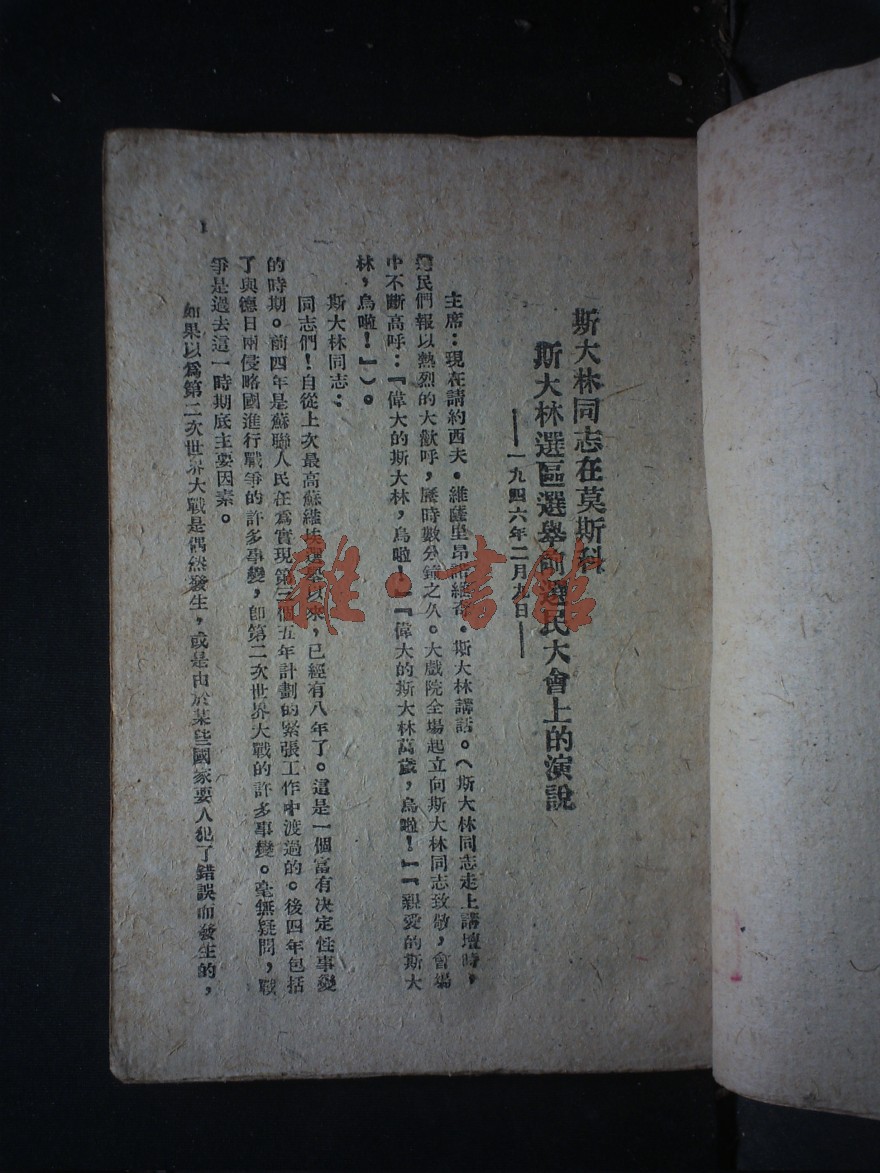 斯大林同志在莫斯科
斯大林選區選舉前選民大會上的演說
——一九四六年二月九日——
主席：現在請約西夫·維薩里昂諾維奇·斯大林講話。（斯大林同志走上講壇時，
選民們報以熱烈的大歡呼，歷時數分鐘之久。大戲院全場起立向斯大林同志致敬，會場
中不斷高呼：『偉大的斯大林，烏啦！』『偉大的斯大林萬歲，烏啦！』『親愛的斯大
林，烏啦！』）。
斯大林同志：
同志們！自從上次最高蘇維埃選舉以來，已經有八年了。這是一個富有决定性事變
的時期。前四年是蘇聯人民在爲實現第三個五年計劃的緊張工作中渡過的。後四年包括
了與德日兩侵略國進行戰爭的許多事變，卽第二次世界大戰的許多事變。毫無疑問，戰
爭是過去這一時期底主要因素。
如果以爲第二次世界大戰是偶然發生，或是由於某些國家要人犯了錯誤而發生的，
1
雜·書館